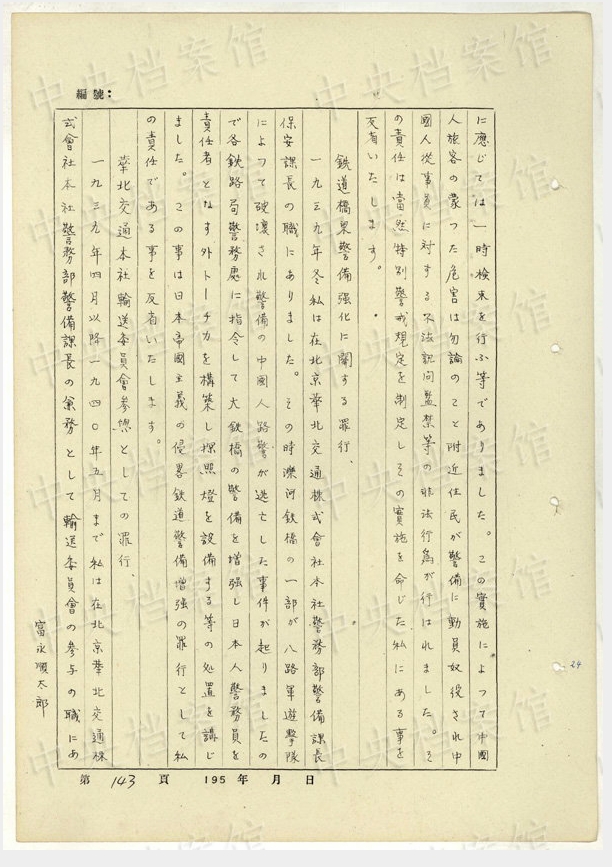 編號:
に應じては一時検束を行ふ等でありました。この實施によつて中國
人旅客の蒙つた危害は勿論のこと附近住民が警備に動員奴役され中
國人從事員に対する不法訊问監禁等の非法行為が行はれました。そ
の責任は當然特别警戒規定を制定しその實施を命じた私にある事を
反省いたします。
鉄道橋梁警備强化に関する罪行、
一九三九年冬私は在北京華北交通株式會社本社警務部警備課長
保安課長の職にありました。その時灤河鉄橋の一部が八路軍遊撃隊
によつて破壞され警備の中國人路警が逃亡した事件が起りましたの
で各鉄路局警務處に指令して大鉄橋の警備を増强し日本人警務員を
責任者となす外トーチカを構築し探照燈を設備する等の処置を講じ
ました。この事は日本帝國主義の侵畧鉄道警備増强の罪行として私
の責任である事を反省いたします。
華北交通本社輸送委員會参與としての罪行、
一九三九年四月以降一九四〇年五月まで私は在北京華北交通株
式會社本社警務部警備課長の兼務として輸送委員會の参与の職にあ
富永順太郎
24
第 143 頁 195 年 月 日
中央档案馆